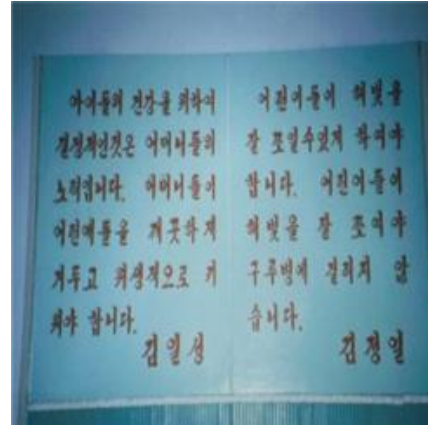 아이들의 건강을 위하여
결정적인것은 어머니들의
노력입니다. 어머니들이
어린애들을 깨끗하게
거두고 위생적으로 키
워야 합니다.
김일성
어린이들이 해빛을
잘 쪼일수있게 하여야
합니다. 어린이들이
해빛을 잘 쪼여야
구루병에 걸리지 않
습니다.
김정일